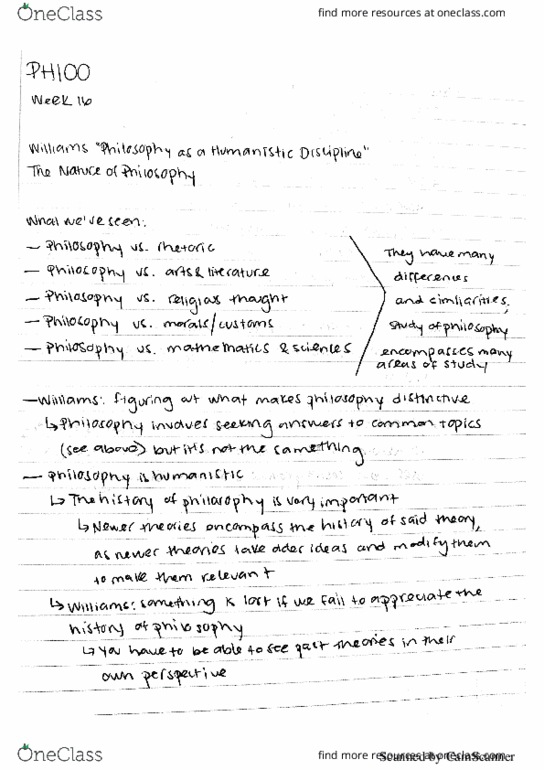 OneClass
find more resources at oneclass.com
PH100
Week 16
Williams "Philosophy as a Humanistic Discipline"
The Nature of Philosophy
What we've seen:
— Philosophy vs. rhetoric
— Philosophy vs. arts & literature
— Philosophy vs. religias thaught
— Philosophy vs. morals/customs
— Philosophy vs. mathematics & sciences
They have many
differences
and cimilarities,
study of philosophy
encompasses many
areas of study
— Williams: figuring out what makes philosophy distinctive
↳ Philosophy involves seeking answers to common topics
(see above) but it's not the same thing
— Philosophy is humanistic
↳ The history of philosophy is very important
↳ Newer theories encompass the history of said theory,
as newer theories take older ideas and modify them
to make them relevant
↳ Williams: something is lost if we fail to appreciate the
history of philosophy
↳ You have to be able to see past theories in their
own perspective
OneClass
find more resources at oneclass.com
Scanned by CamScanner